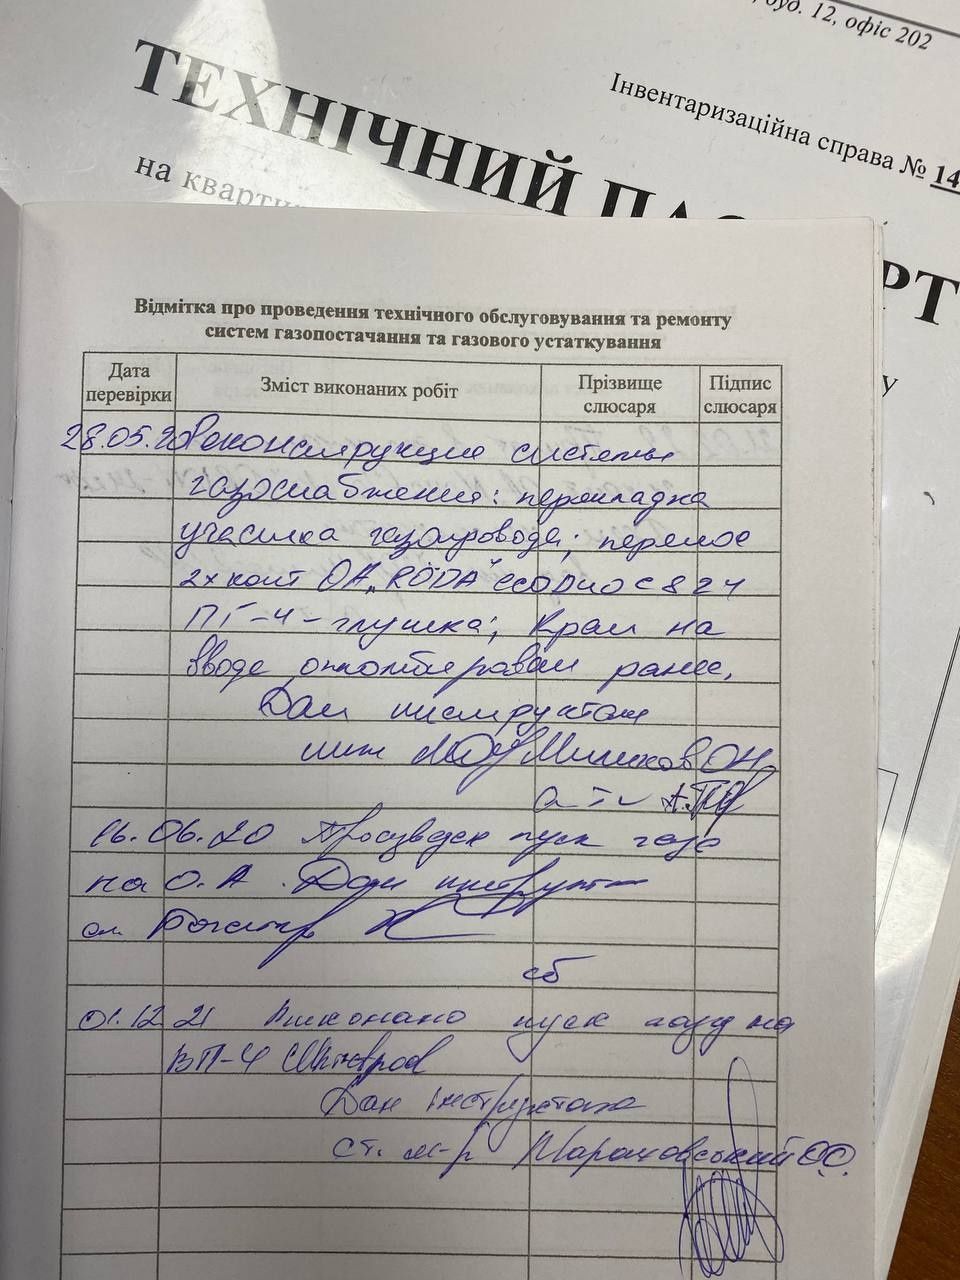 буд. 12, офіс 202
Інвентаризаційна справа № 14
ТЕХНІЧНИЙ
на
Відмітка про проведення технічного обслуговування та ремонту
систем газопостачання та газового устаткування
Дата перевірки
Зміст виконаних робіт
Прізвище слюсаря
Підпис слюсаря
28.05.20 Реконструкция системы
газоснабжения: перекладка
участка газопровода; перенос
ОА „RÖDA"
ПГ-4 - глушка; Кран на
вводе ранее.
Дан инструктаж
ОН
16.06.20 Произведен пуск газа
на О.А. Дан инструктаж
сл.
сб
01.12 21 Виконано пуск газу на
ВП-4
Дан інструктаж
ст. м-р Мараховський О.О.